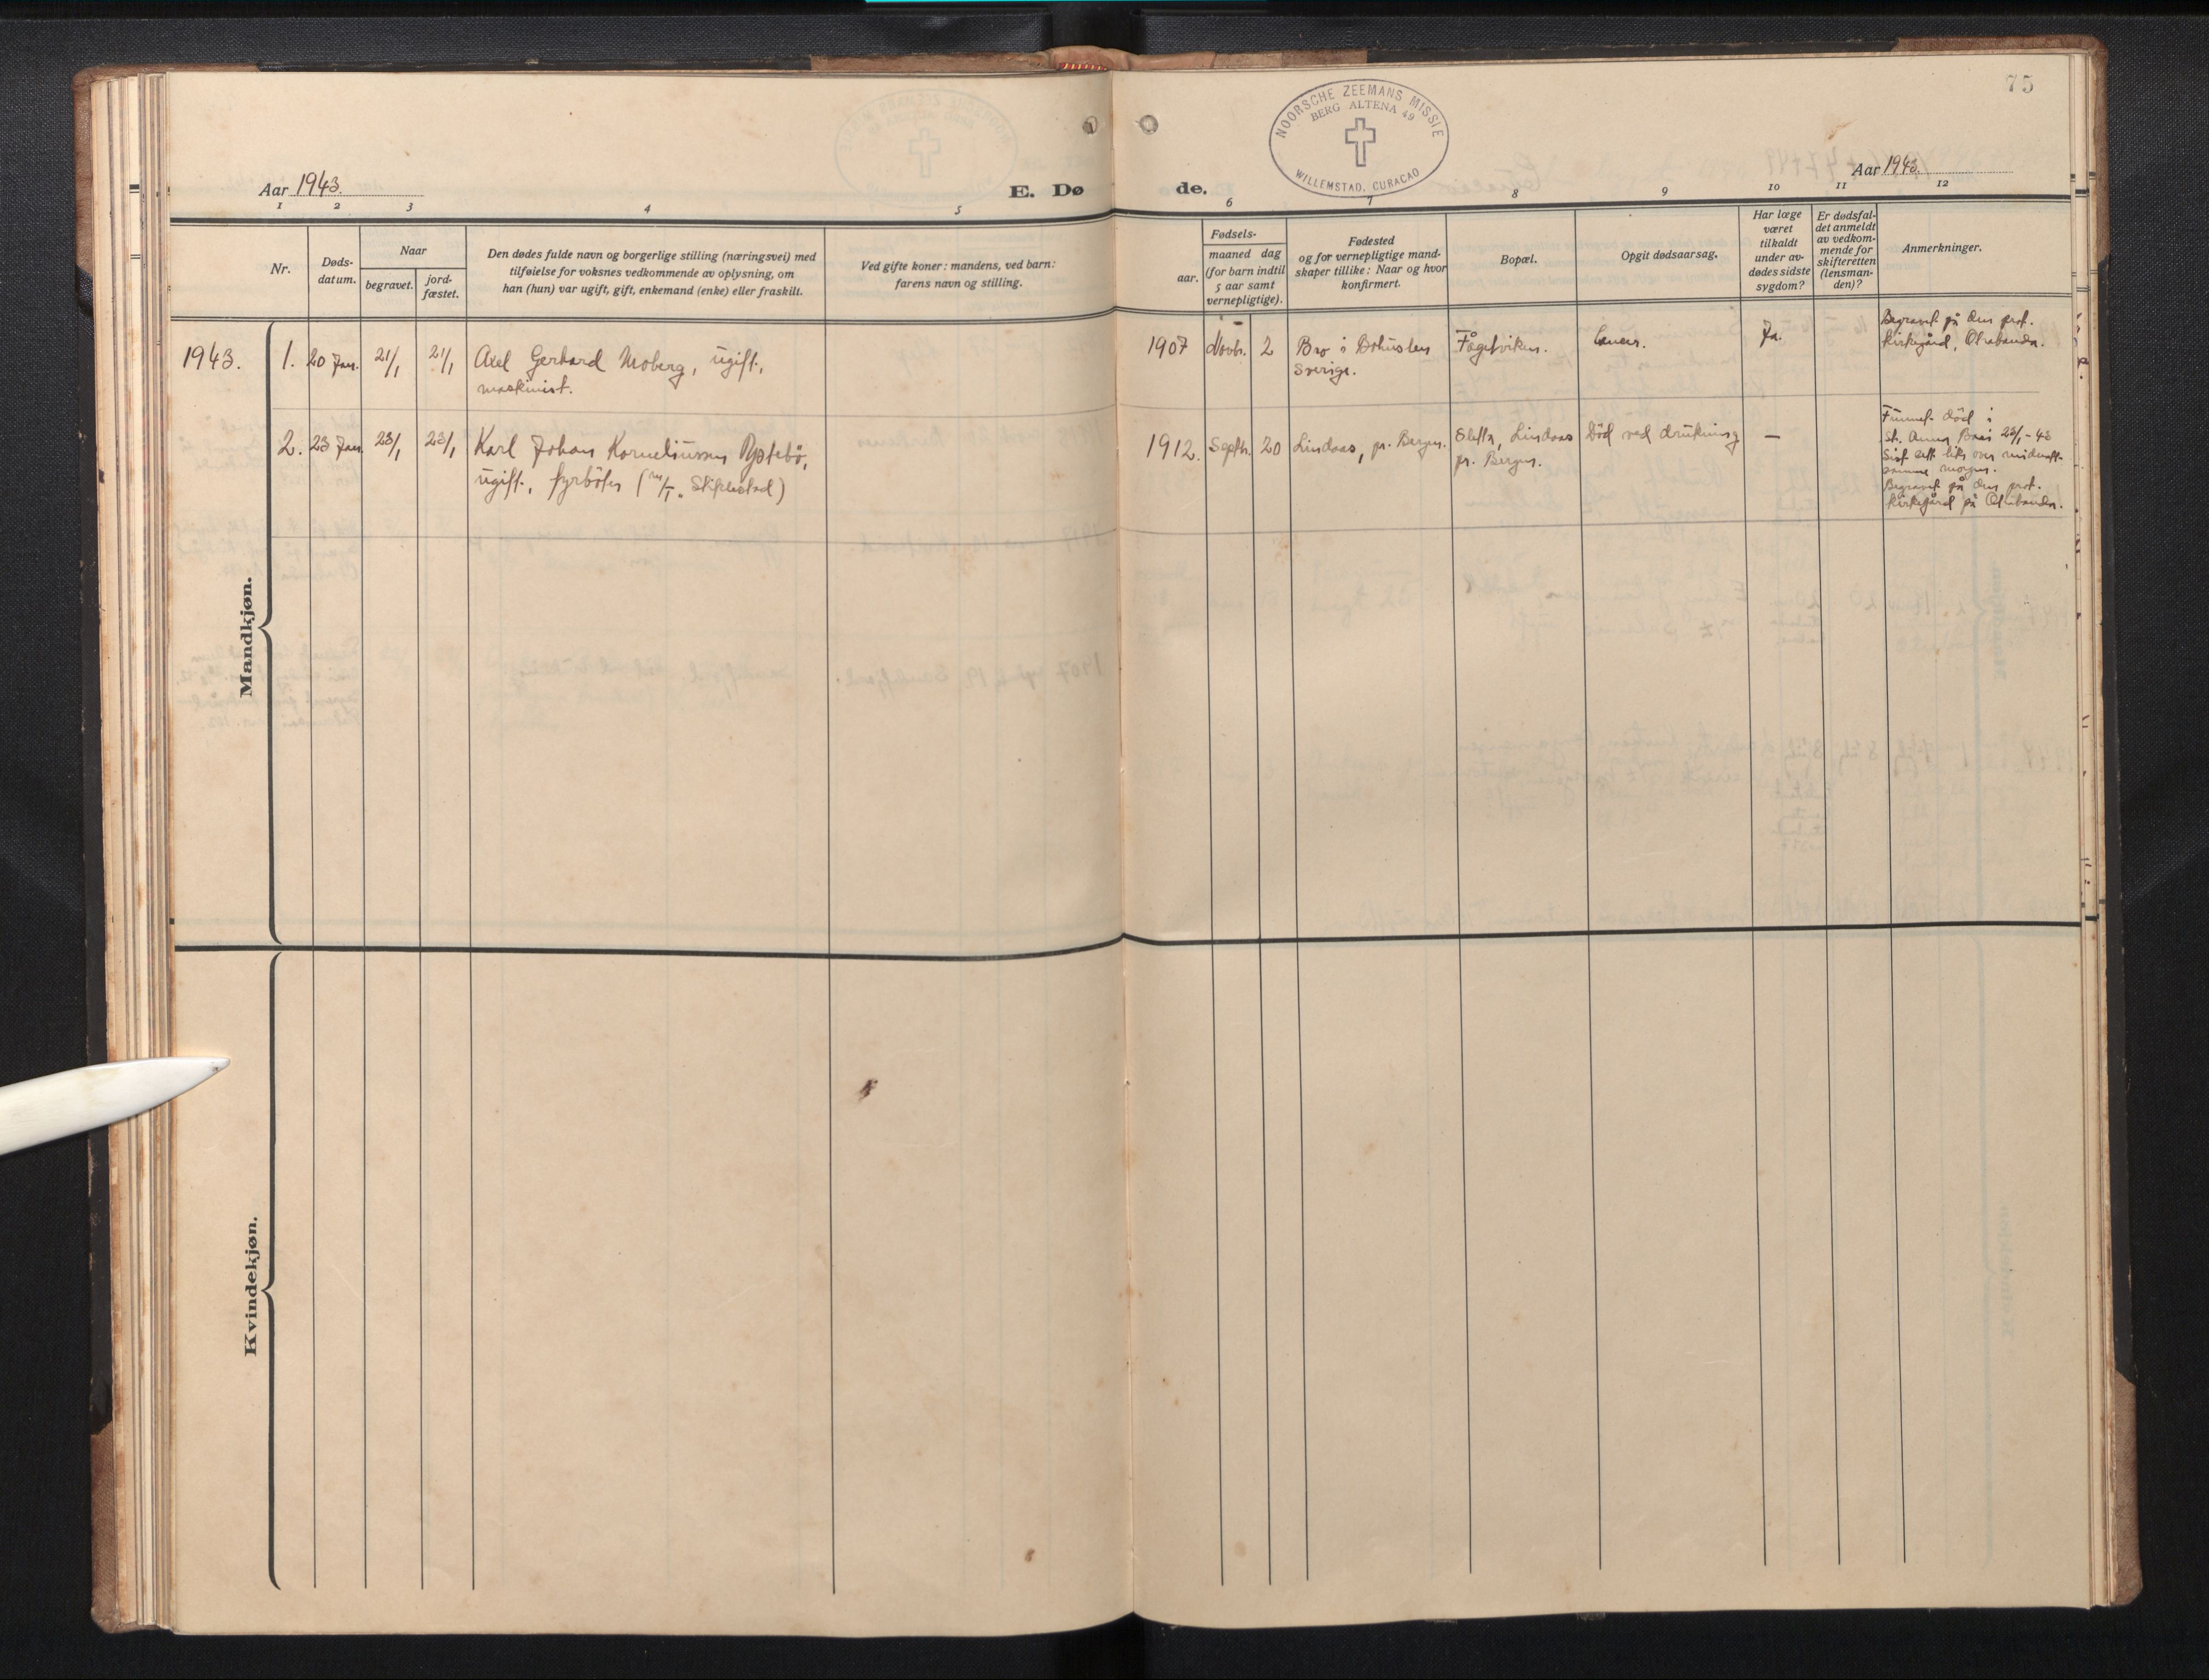 75
NOORSCHE ZEEMANS MISSIE
BERG ALTENA 49
WILLEMSTAD, CURACAO
Aar 1943.
E. Dø
de.
Aar 1943.
1 2 3 4 5
6 7 8 9 10 11 12
Nr.
Døds-
datum.
Naar
begravet.
jord-
fæstet.
Den dødes fulde navn og borgerlige stilling (næringsvei) med
tilføielse for voksnes vedkommende av oplysning, om
han (hun) var ugift, gift, enkemand (enke) eller fraskilt.
Ved gifte koner: mandens, ved barn:
farens navn og stilling.
Fødsels-
aar.
maaned dag
(for barn indtil
5 aar samt
vernepligtige).
Fødested
og for vernepligtige mand-
skaper tillike: Naar og hvor
konfirmert.
Bopæl.
Opgit dødsaarsag.
Har læge
været
tilkaldt
under av-
dødes sidste
sygdom?
Er dødsfal-
det anmeldt
av vedkom-
mende for
skifteretten
(lensman-
den)?
Anmerkninger.
Mandkjøn.
1943.
1. 20 Jan. 21/1 21/1
Axel Gerhard Moberg, ugift,
maskinist.
1907 Novb. 2
Bro i Bohuslen
Sverige.
Fågelviken.
Cancer.
Ja.
Begravet på den prot.
kirkegård, Otrabanda.
2. 23 Jan. 23/1 23/1
Karl Johan Korneliussen
ugift, fyrböter
1912. Septb. 20
Lindaas, pr. Bergen.
Sletta, Lindaas
pr. Bergen.
Död ved drukning
—
Funnet död i
St. Anna Baai 23/1-43
Sist sett litt over midnatt
samme morgen.
Begravet på den prot.
kirkegård på Otrabanda.
Kvindekjøn.